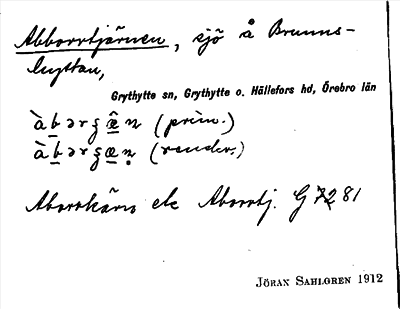 Abborrtjärnen, sjö å Brunns-
hyttan,
Grythytte sn, Grythytte o. Hällefors hd, Örebro län
àbərʒæn (prim.)
àbərʒæn (sender.)
Aborrkärn etc Aborrtj. G 72 81
JÖRAN SAHLGREN 1912